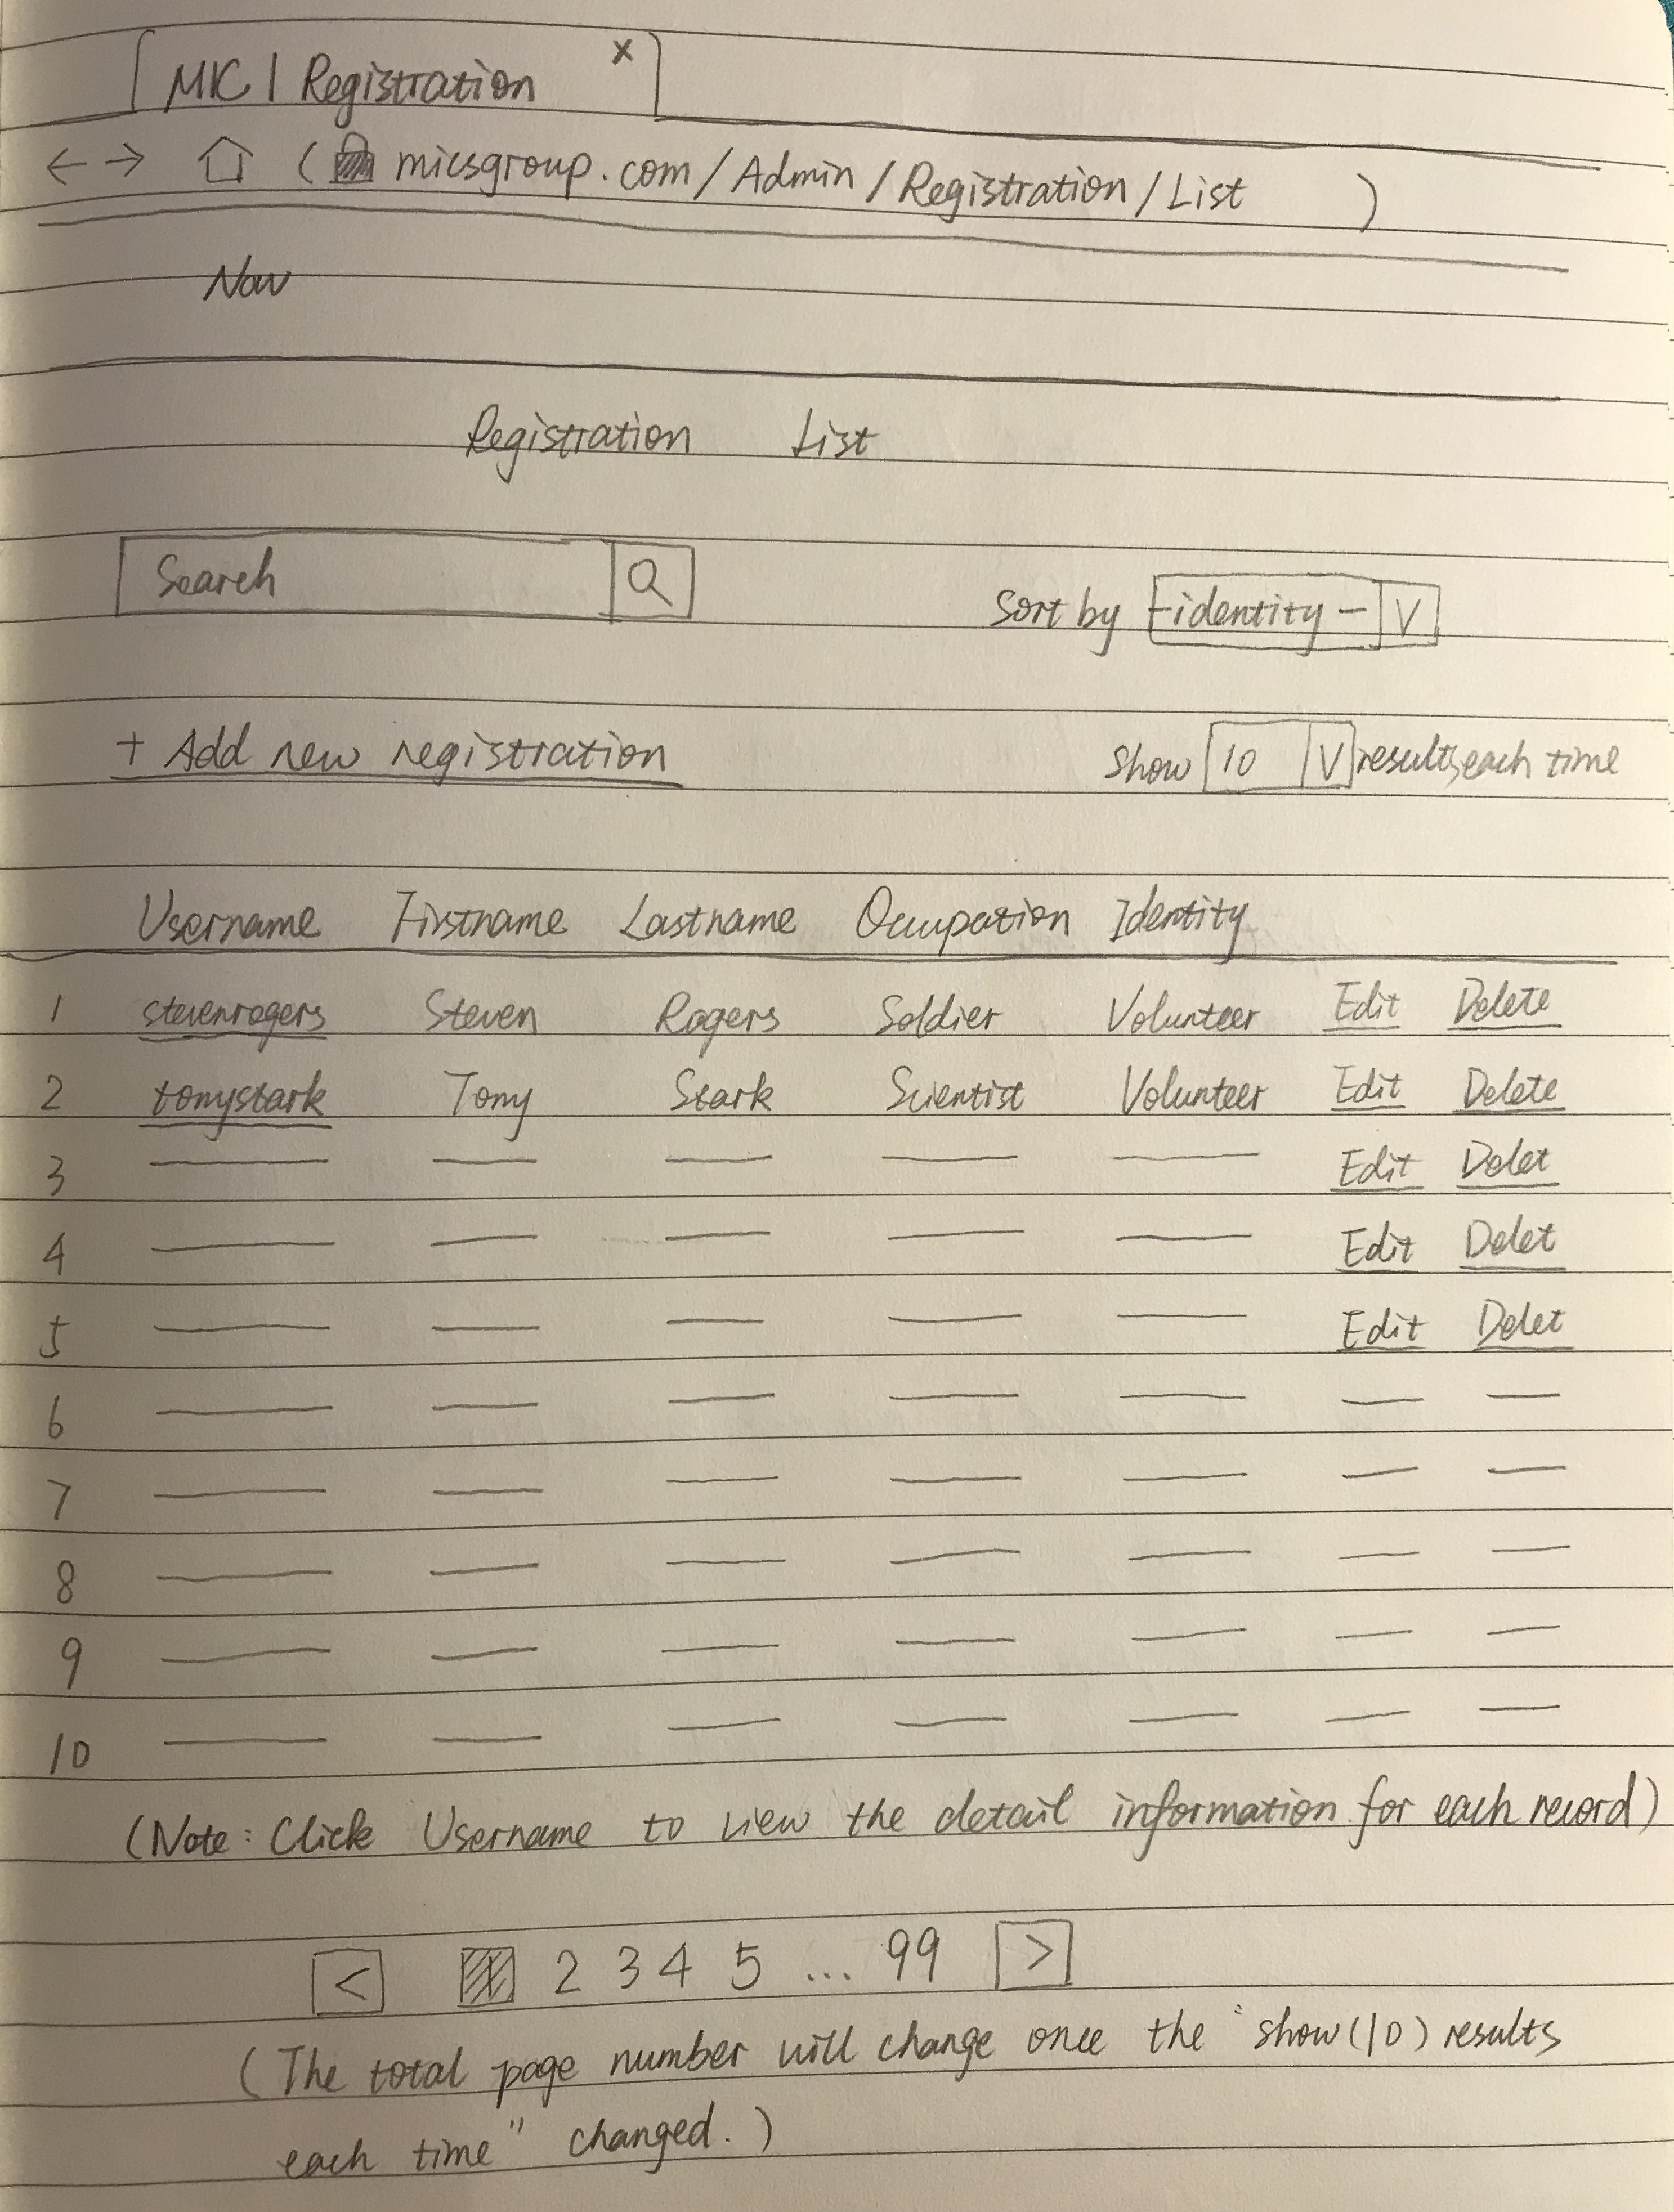 MIC | Registration x
← → micsgroup.com/Admin/Registration/List
Nav
Registration List
Search
Sort by -identity- V
+ Add new registration
Show 10 V results each time
Username Firstname Lastname Occupation Identity
1 stevenrogers Steven Rogers Soldier Volunteer Edit Delete
2 tonystark Tony Stark Scientist Volunteer Edit Delete
3 — — — — — Edit Delet
4 — — — — — Edit Delet
5 — — — — — Edit Delet
6 — — — — — — —
7 — — — — — — —
8 — — — — — — —
9 — — — — — — —
10 — — — — — — —
(Note: Click Username to view the detail information for each record)
< 1 2 3 4 5 ... 99 >
(The total page number will change once the "show(10) results
each time" changed.)